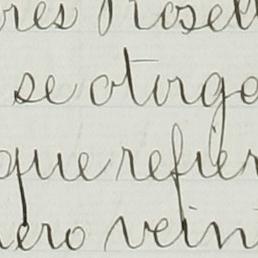 res Rosell
se otorga
que refier
nero vein